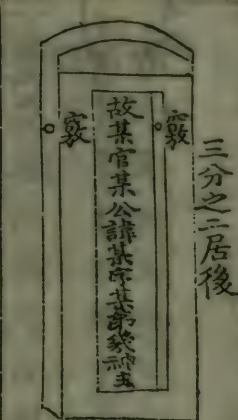 三分之二居後
竅
故某官某公諱某字某第幾神主
竅